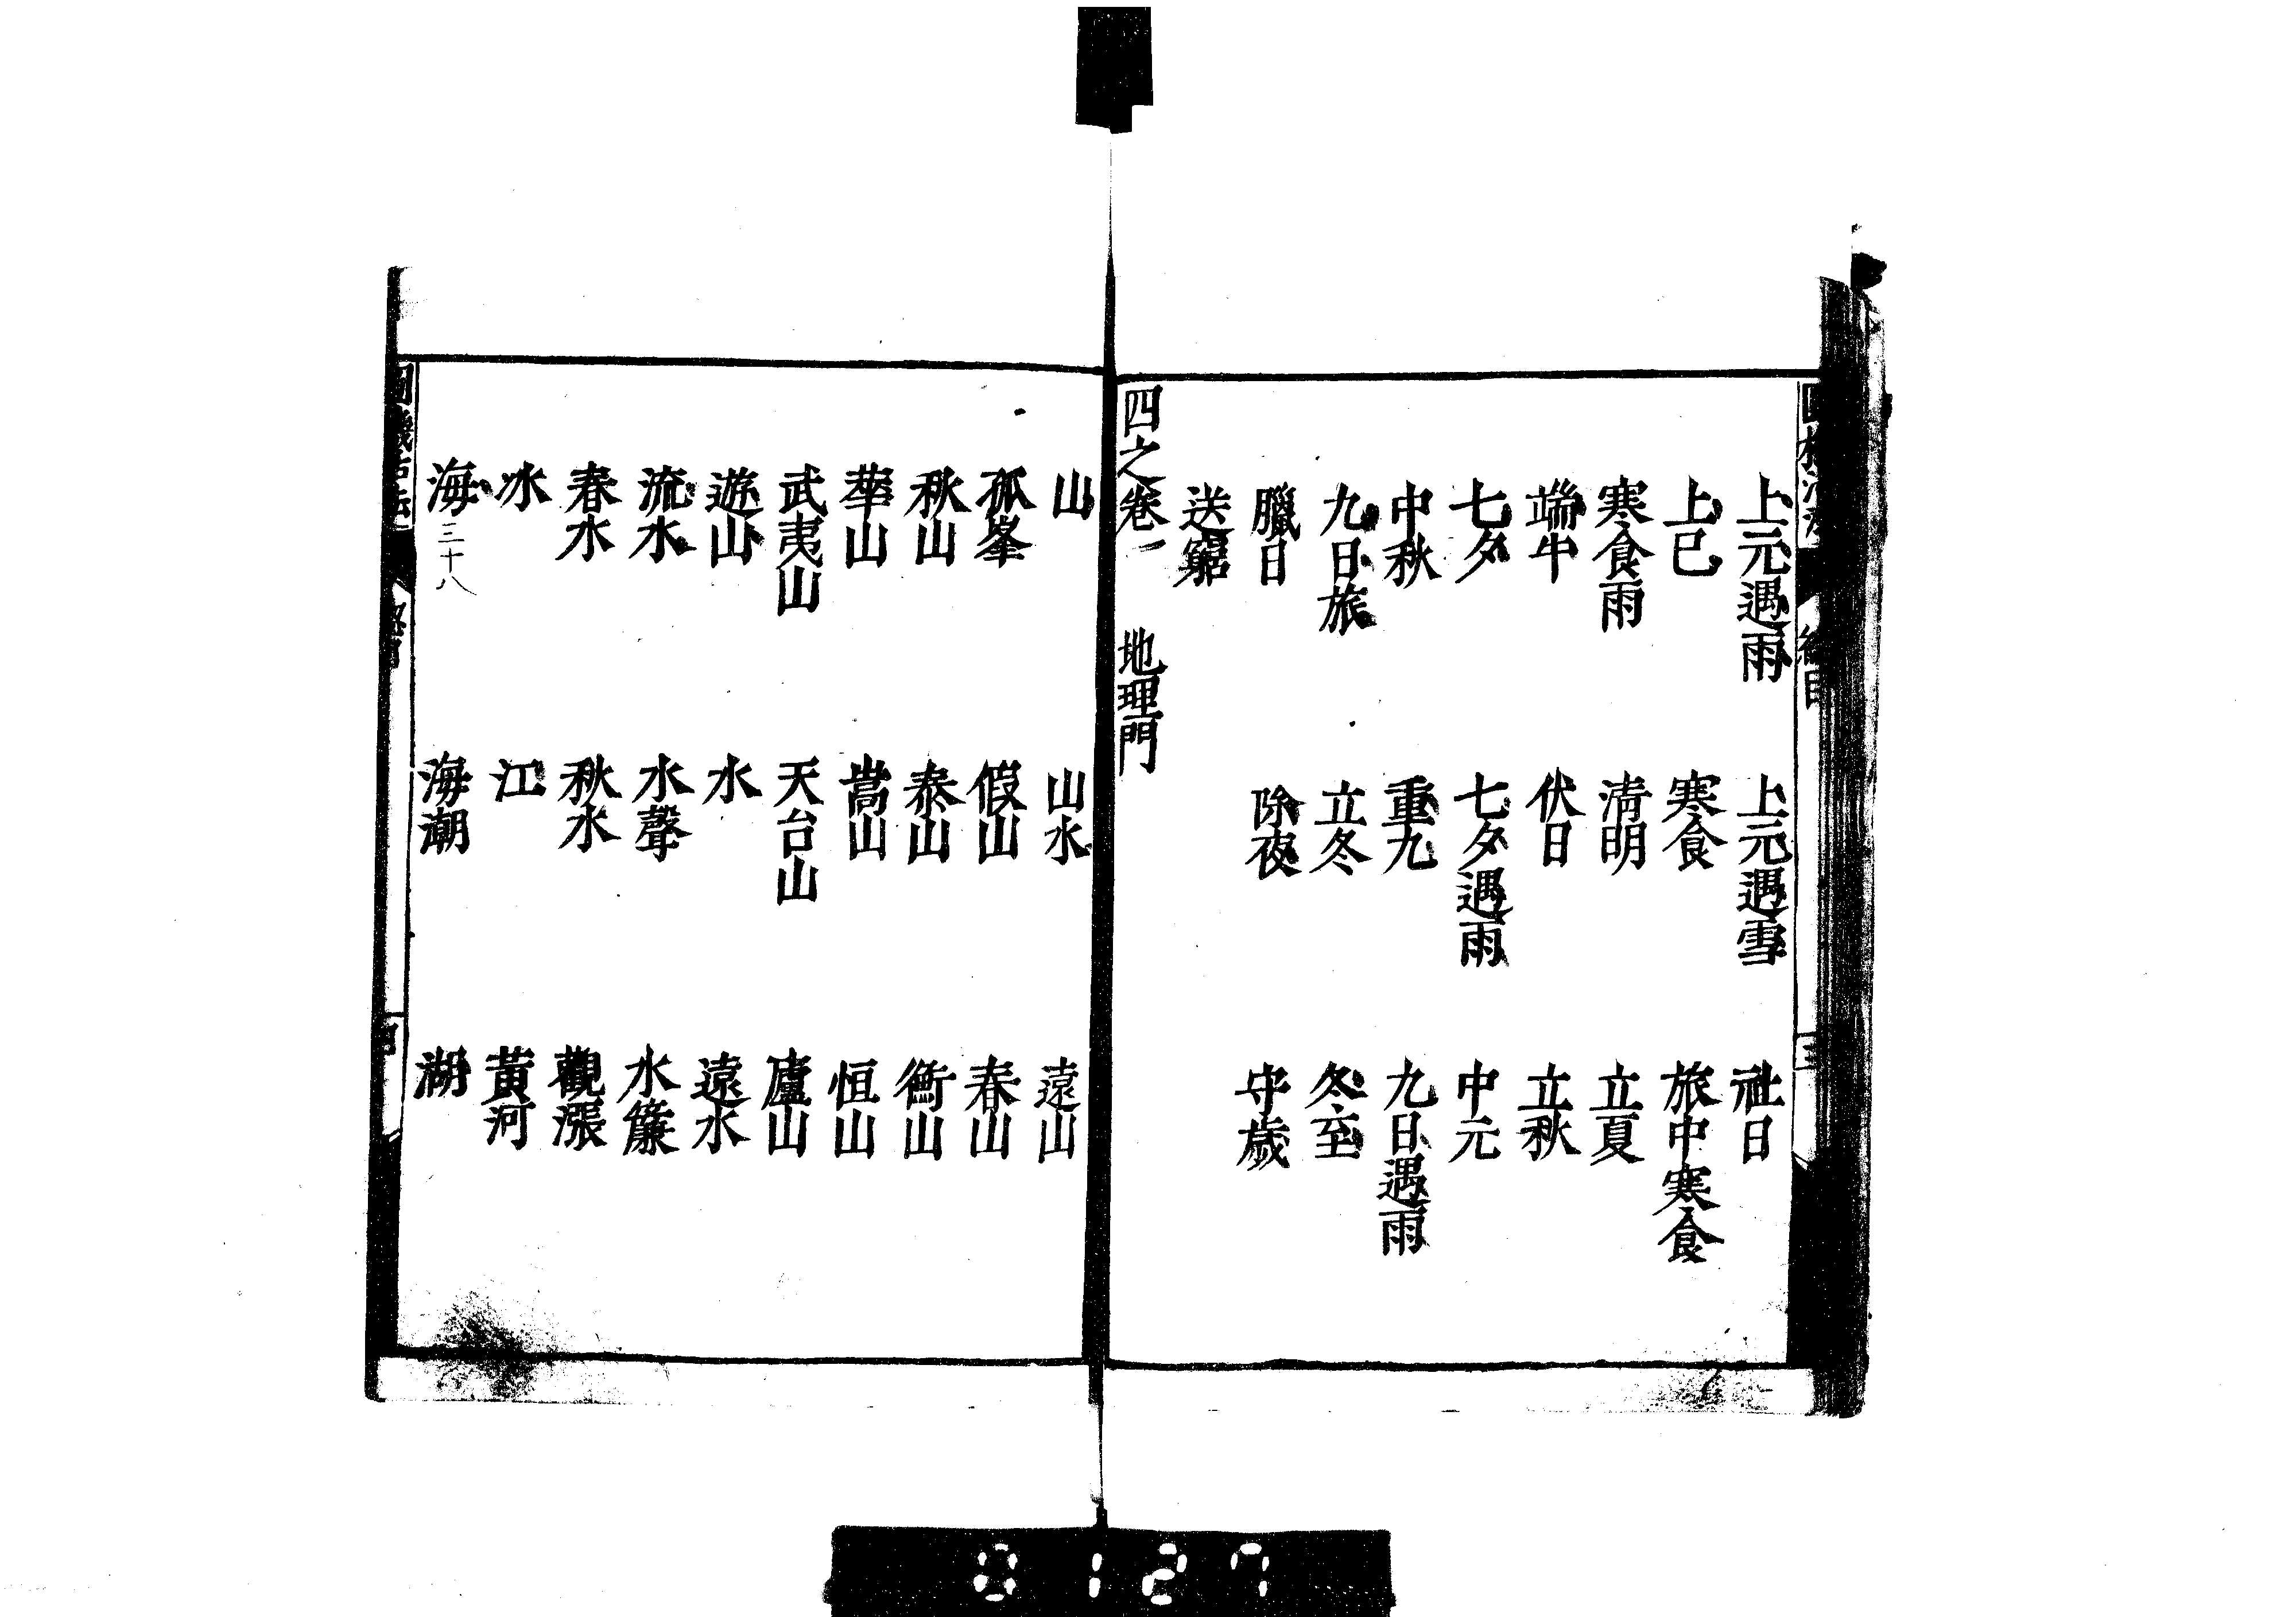 上元遇雨　上元遇雪　社日
上巳　寒食　旅中寒食
寒食雨　清明　立夏
端午　伏日　立秋
七夕　七夕遇雨　中元
中秋　重九　九日遇雨
九日旅　立冬　冬至
臘日　除夜　守歲
送窮
四之卷一　地理門
山　山水　遠山
孤峯　假山　春山
秋山　泰山　衡山
華山　嵩山　恒山
武夷山　天台山　廬山
遊山　水　遠水
流水　水聲　水簾
春水　秋水　觀漲
冰　江　黃河
海三十八　海潮　湖
0127